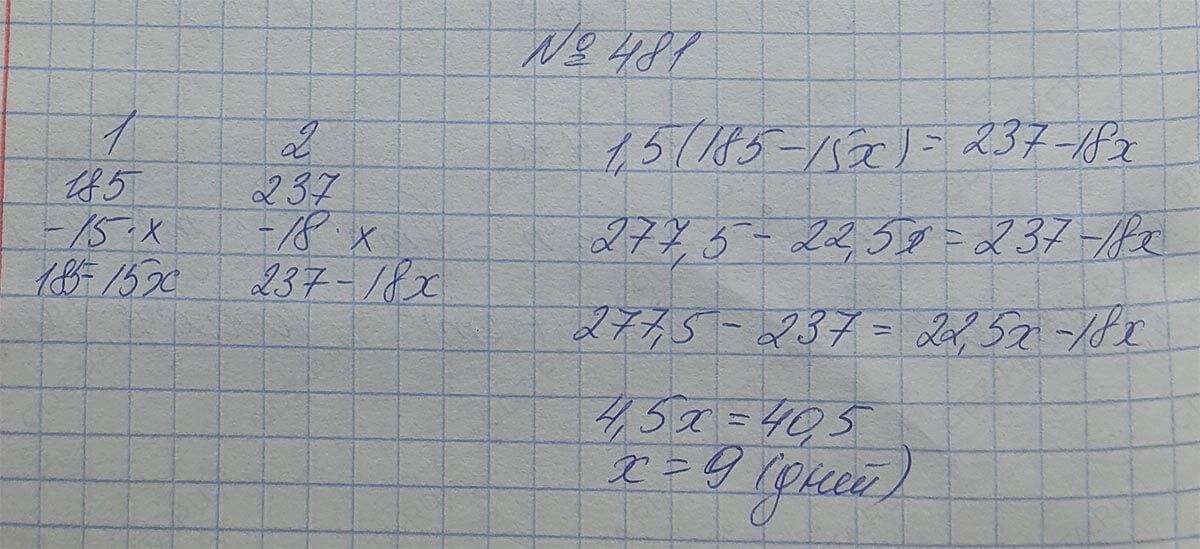 № 481
1 2
185 237
-15·x -18·x
185-15x 237-18x
1,5(185-15x)=237-18x
277,5-22,5x=237-18x
277,5-237=22,5x-18x
4,5x=40,5
x=9 (дней)